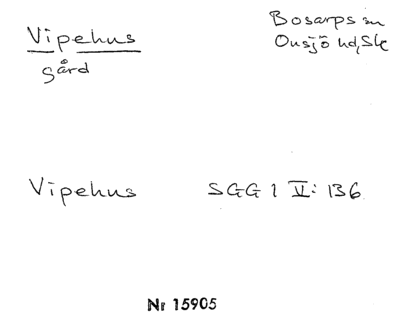 Vipehus
gård
Bosarps sn
Onsjö hd, Sk
Vipehus SGG 1 V: 136
Nr 15905